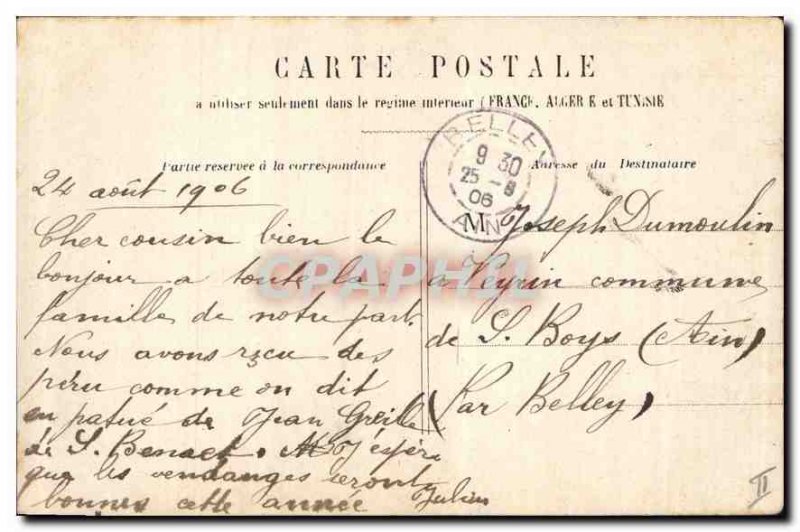 CARTE POSTALE
a utiliser seulement dans le regime interieur (FRANCE, ALGERIE et TUNISIE
Partie reservee à la correspondance
24 août 1906
Cher cousin bien le
bonjour a toute la
famille de notre part.
Nous avons reçu des
comme on dit
en patué de Jean
de S. Benoet. J espére
que les vendanges seront
bonnes cette année Julien
BELLEY
9 30
25 - 8
06
AIN
Adresse du Destinataire
M Joseph Dumoulin
a Veyrin commune
de S. Boys (Ain)
(Par Belley)
CPAPHIL
II